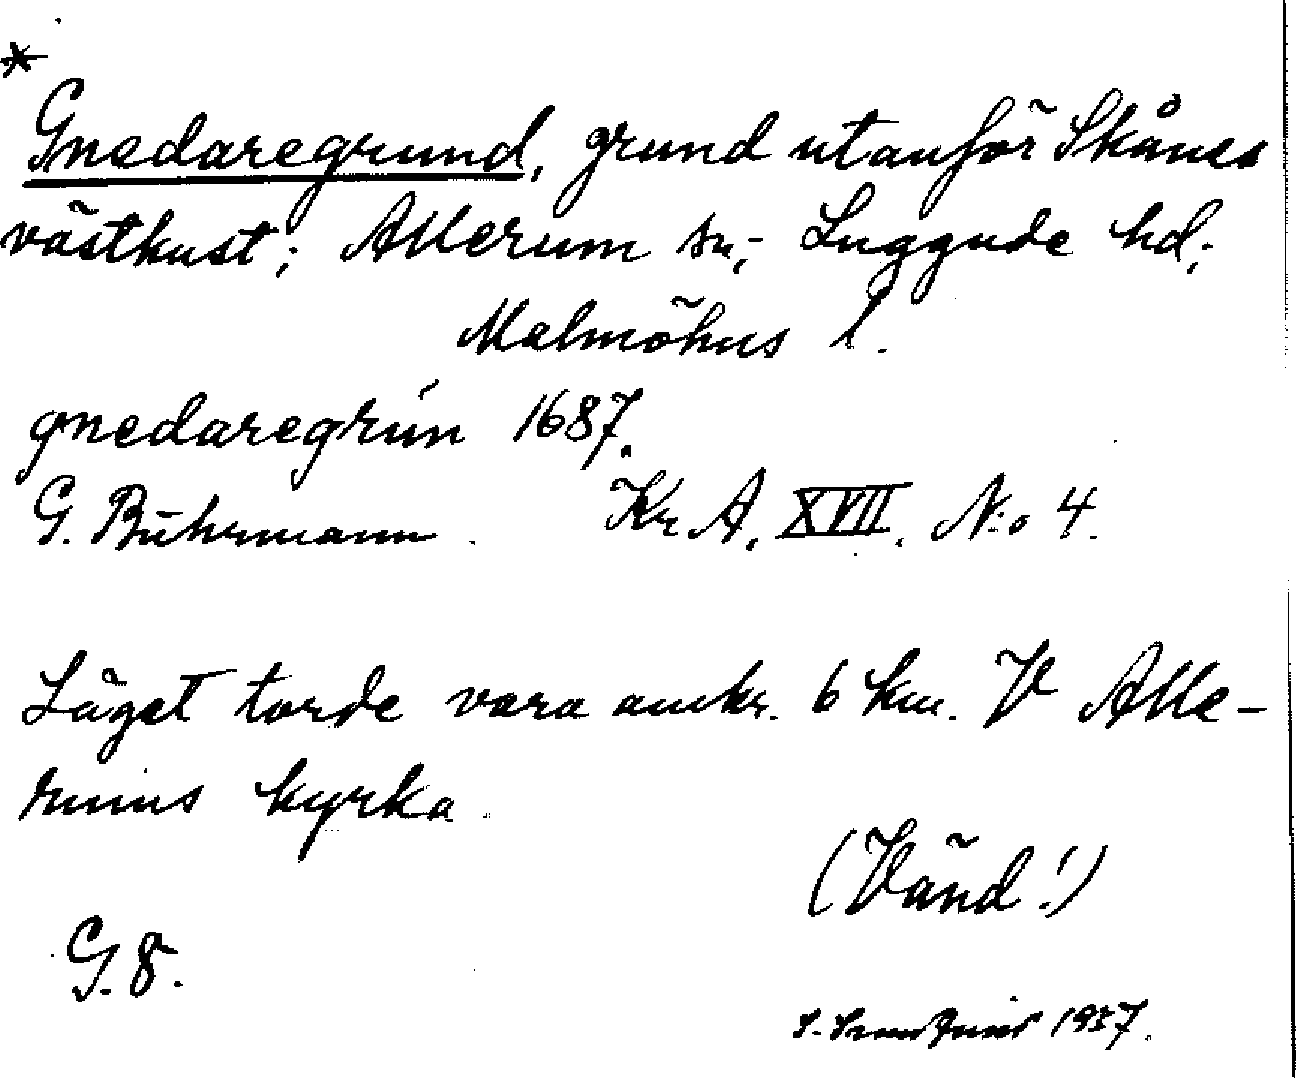 *
Gnedaregrund, grund utanför Skånes
västkust; Allerum sn; Luggude hd;
Malmöhus l.
gnedaregrún 1687.
G. Buhrmann. Kr. A. XVII. N:o 4.
Läget torde vara omkr. 6 km. V Alle-
rums kyrka.
(Vänd!)
G. 8.
1937.